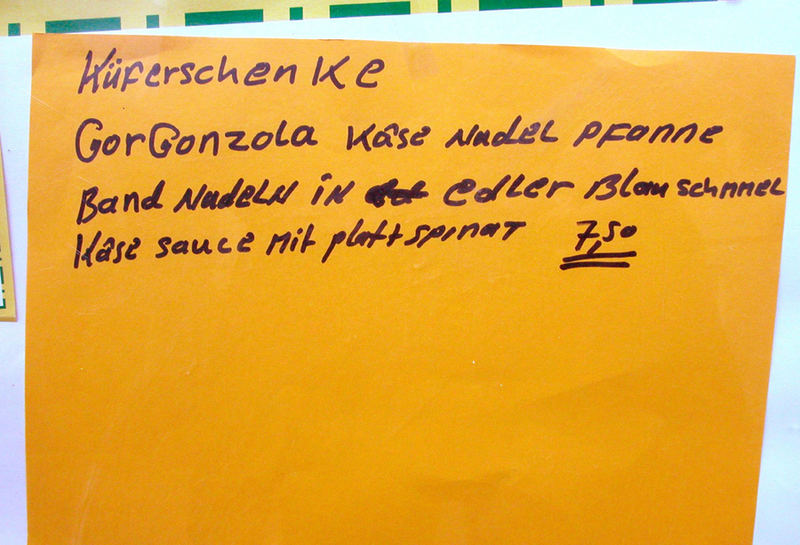 Küferschenke
GorGonzola Käse Nudel Pfanne
Band Nudeln in edler Blauschmmel
Käse sauce mit plattspinat 7,50